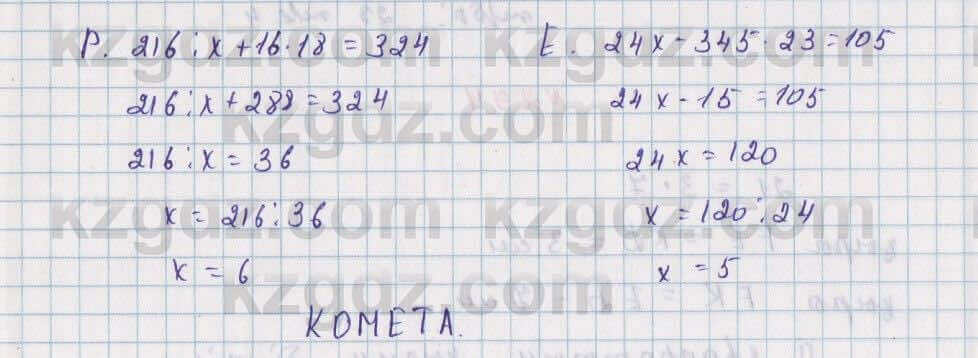 Р. 216 : x + 16 · 18 = 324
216 : x + 288 = 324
216 : x = 36
x = 216 : 36
x = 6
Е. 24x - 345 : 23 = 105
24x - 15 = 105
24x = 120
x = 120 : 24
x = 5
КОМЕТА.
kzgdz.com
kzgdz.com
kzgdz.com
kzgdz.com
kzgdz.com
kzgdz.com
kzgdz.com
kzgdz.com